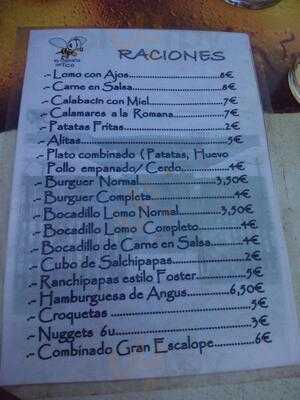 RACIONES
.- Lomo con Ajos.......................8€
.- Carne en Salsa......................8€
.- Calabacín con Miel..................7€
.- Calamares a la Romana...............7€
.- Patatas Fritas......................2€
.- Alitas..............................5€
.- Plato combinado ( Patatas, Huevo
Pollo empanado/ Cerdo..................4€
.- Burguer Normal...................3,50€
.- Burguer Completa....................4€
.- Bocadillo Lomo Normal............3,50€
.- Bocadillo Lomo Completo.............4€
.- Bocadillo de Carne en Salsa.........4€
.- Cubo de Salchipapas.................2€
.- Ranchipapas estilo Foster...........5€
.- Hamburguesa de Angus.............6,50€
.- Croquetas ..........................5€
.- Nuggets 6u..........................3€
.- Combinado Gran Escalope.............6€